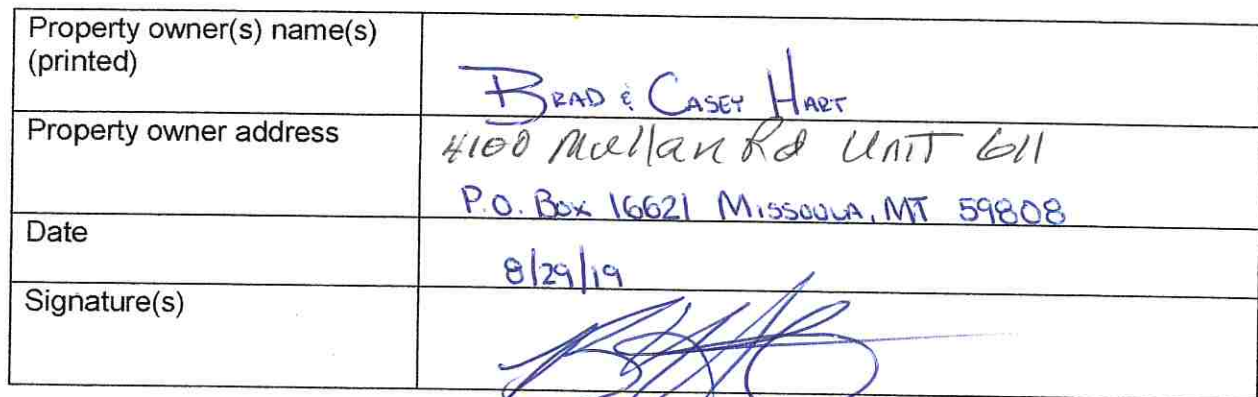 Property owner(s) name(s)
(printed)
BRAD & CASEY HART
Property owner address
4100 Mullan Rd UNIT 611
P.O. Box 16621 MISSOULA, MT 59808
Date
8/29/19
Signature(s)